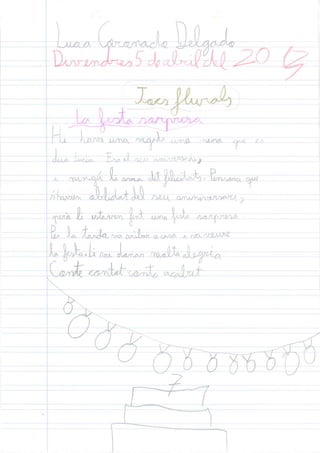 Luaa Granado Delgado
Divendres 5 de abril del 20
Jocs flurals
La festa sorpresa
Hi havia una vegada una nena que es
deia Lucia. Era el seu aniversari,
i ningú li avia dit felicitats. Pensava que
s'havien oblidat del seu aniversari,
però li estaven fent una festa sorpresa.
Per la tarda va arribar a casa i va veure
la festa i li va donar molta alegria
Conte contat conte acabat
7